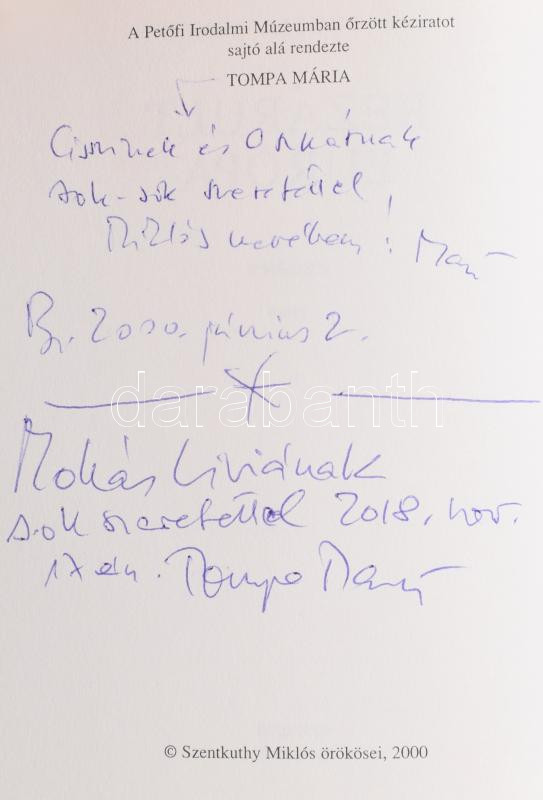 A Petőfi Irodalmi Múzeumban őrzött kéziratot
sajtó alá rendezte
TOMPA MÁRIA
és Oszkárnak
sok-sok szeretettel,
Miklós nevében: Mari
Bp. 2000. június 2.
darabanth
Mokás Líviának
sok szeretettel 2018. nov.
17-én. Tompa Mari
© Szentkuthy Miklós örökösei, 2000